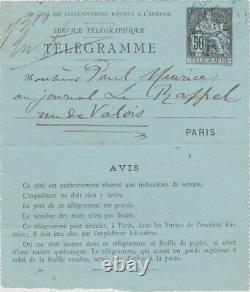 CE CÔTÉ EST EXCLUSIVEMENT RÉSERVÉ A L'ADRESSE
SERVICE TÉLÉGRAPHIQUE
TÉLÉGRAMME
50
Monsieur Paul Meurice
au journal Le Rappel
rue de Valois
PARIS
AVIS
Ce côté est exclusivement réservé aux indications de service.
L'expéditeur ne doit rien y écrire.
Le port de ce télégramme est gratuit.
Le nombre des mots n'est pas limité.
Ce télégramme peut circuler, à Paris, dans les limites de l'enceinte fortifiée; il doit être clos par l'expéditeur lui-même.
On ne doit insérer dans ce télégramme ni feuille de papier, ni objet d'une nature quelconque. Le télégramme, qui aurait un poids supérieur à celui de la feuille vendue, serait versé dans le service de la poste.